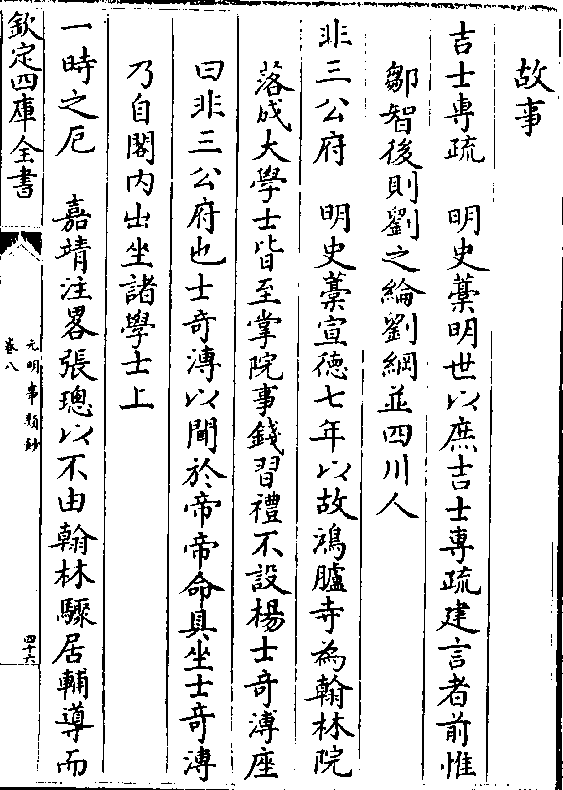 故事
吉士專疏　明史藳明世以庶吉士專疏建言者前惟
鄒智後則劉之綸劉綱並四川人
非三公府　明史藳宣德七年以故鴻臚寺為翰林院
落成大學士皆至掌院事錢習禮不設楊士奇溥座
曰非三公府也士奇溥以聞於帝帝命具坐士奇溥
乃自閣内出坐諸學士上
一時之厄　嘉靖注畧張璁以不由翰林驟居輔導而
欽定四庫全書
元明事類鈔
卷八
四十六